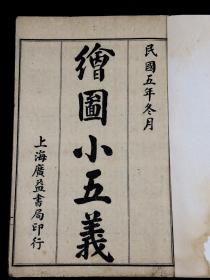 民國五年冬月
繪圖小五義
上海廣益書局印行